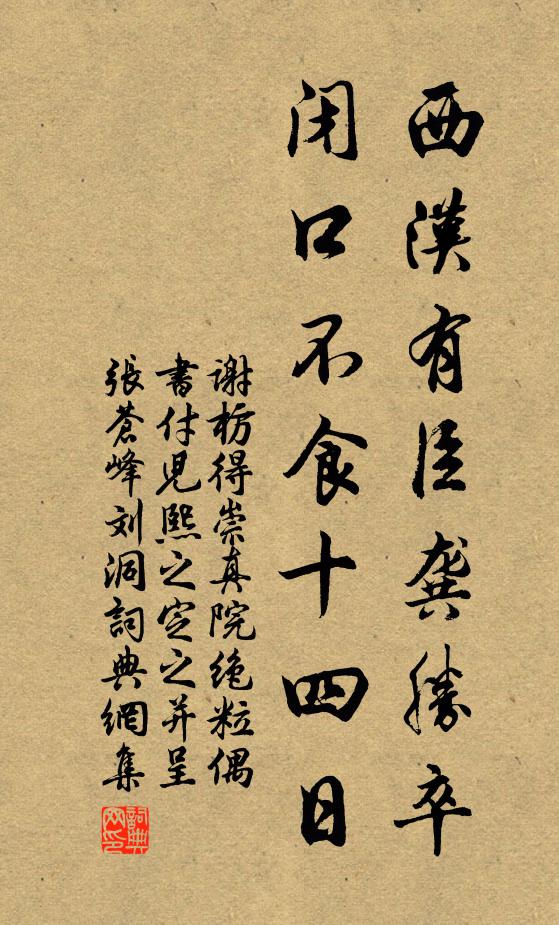 西漢有臣龔勝卒
闭口不食十四日
谢枋得崇真院絶粒偶
書付児熙之定之并呈
張蒼峰刘洞詞典網集
詞典网印